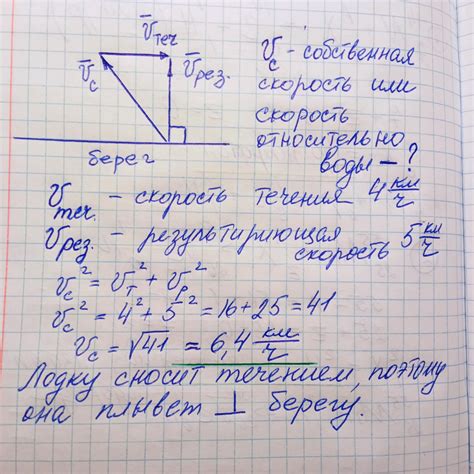 V̅теч
V̅с
V̅рез.
берег
Vс - собственная
скорость или
скорость
относительно
воды - ?
Vтеч. - скорость течения 4 км/ч
Vрез. - результирующая
скорость 5 км/ч
Vс² = Vт² + Vр²
Vс² = 4² + 5² = 16 + 25 = 41
Vс = √41 ≈ 6,4 км/ч
Лодку сносит течением, поэтому
она плывет ⊥ берегу.